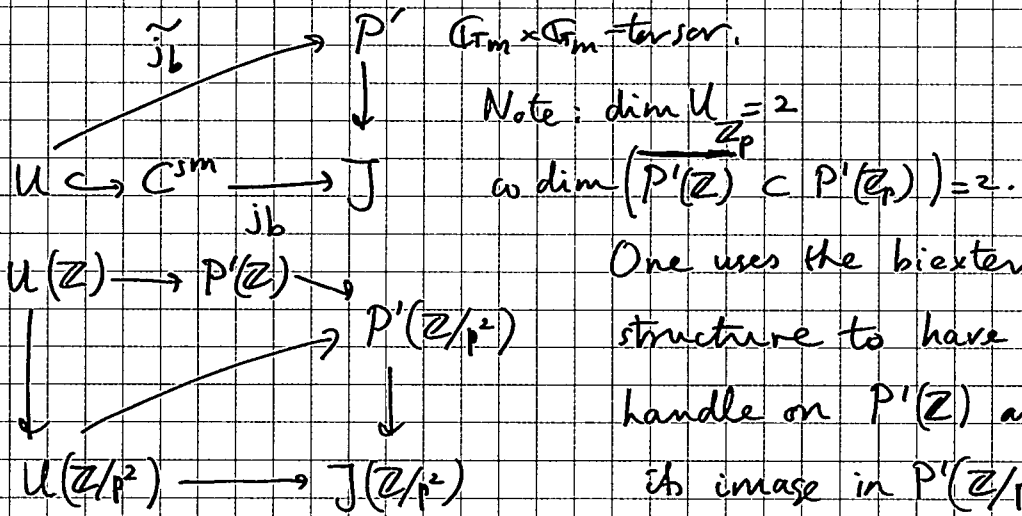 P' 𝔾m × 𝔾m-torsor.
j̃b
Note: dim U_{ℤp} = 2
U ↪ C^{sm} → J
jb
codim(\overline{P'(ℤ)} ⊂ P'(ℤp)) = 2.
U(ℤ) → P'(ℤ)
One uses the biexten
P'(ℤ/p²)
structure to have
handle on P'(ℤ) a
U(ℤ/p²) → J(ℤ/p²)
its image in P'(ℤ/p